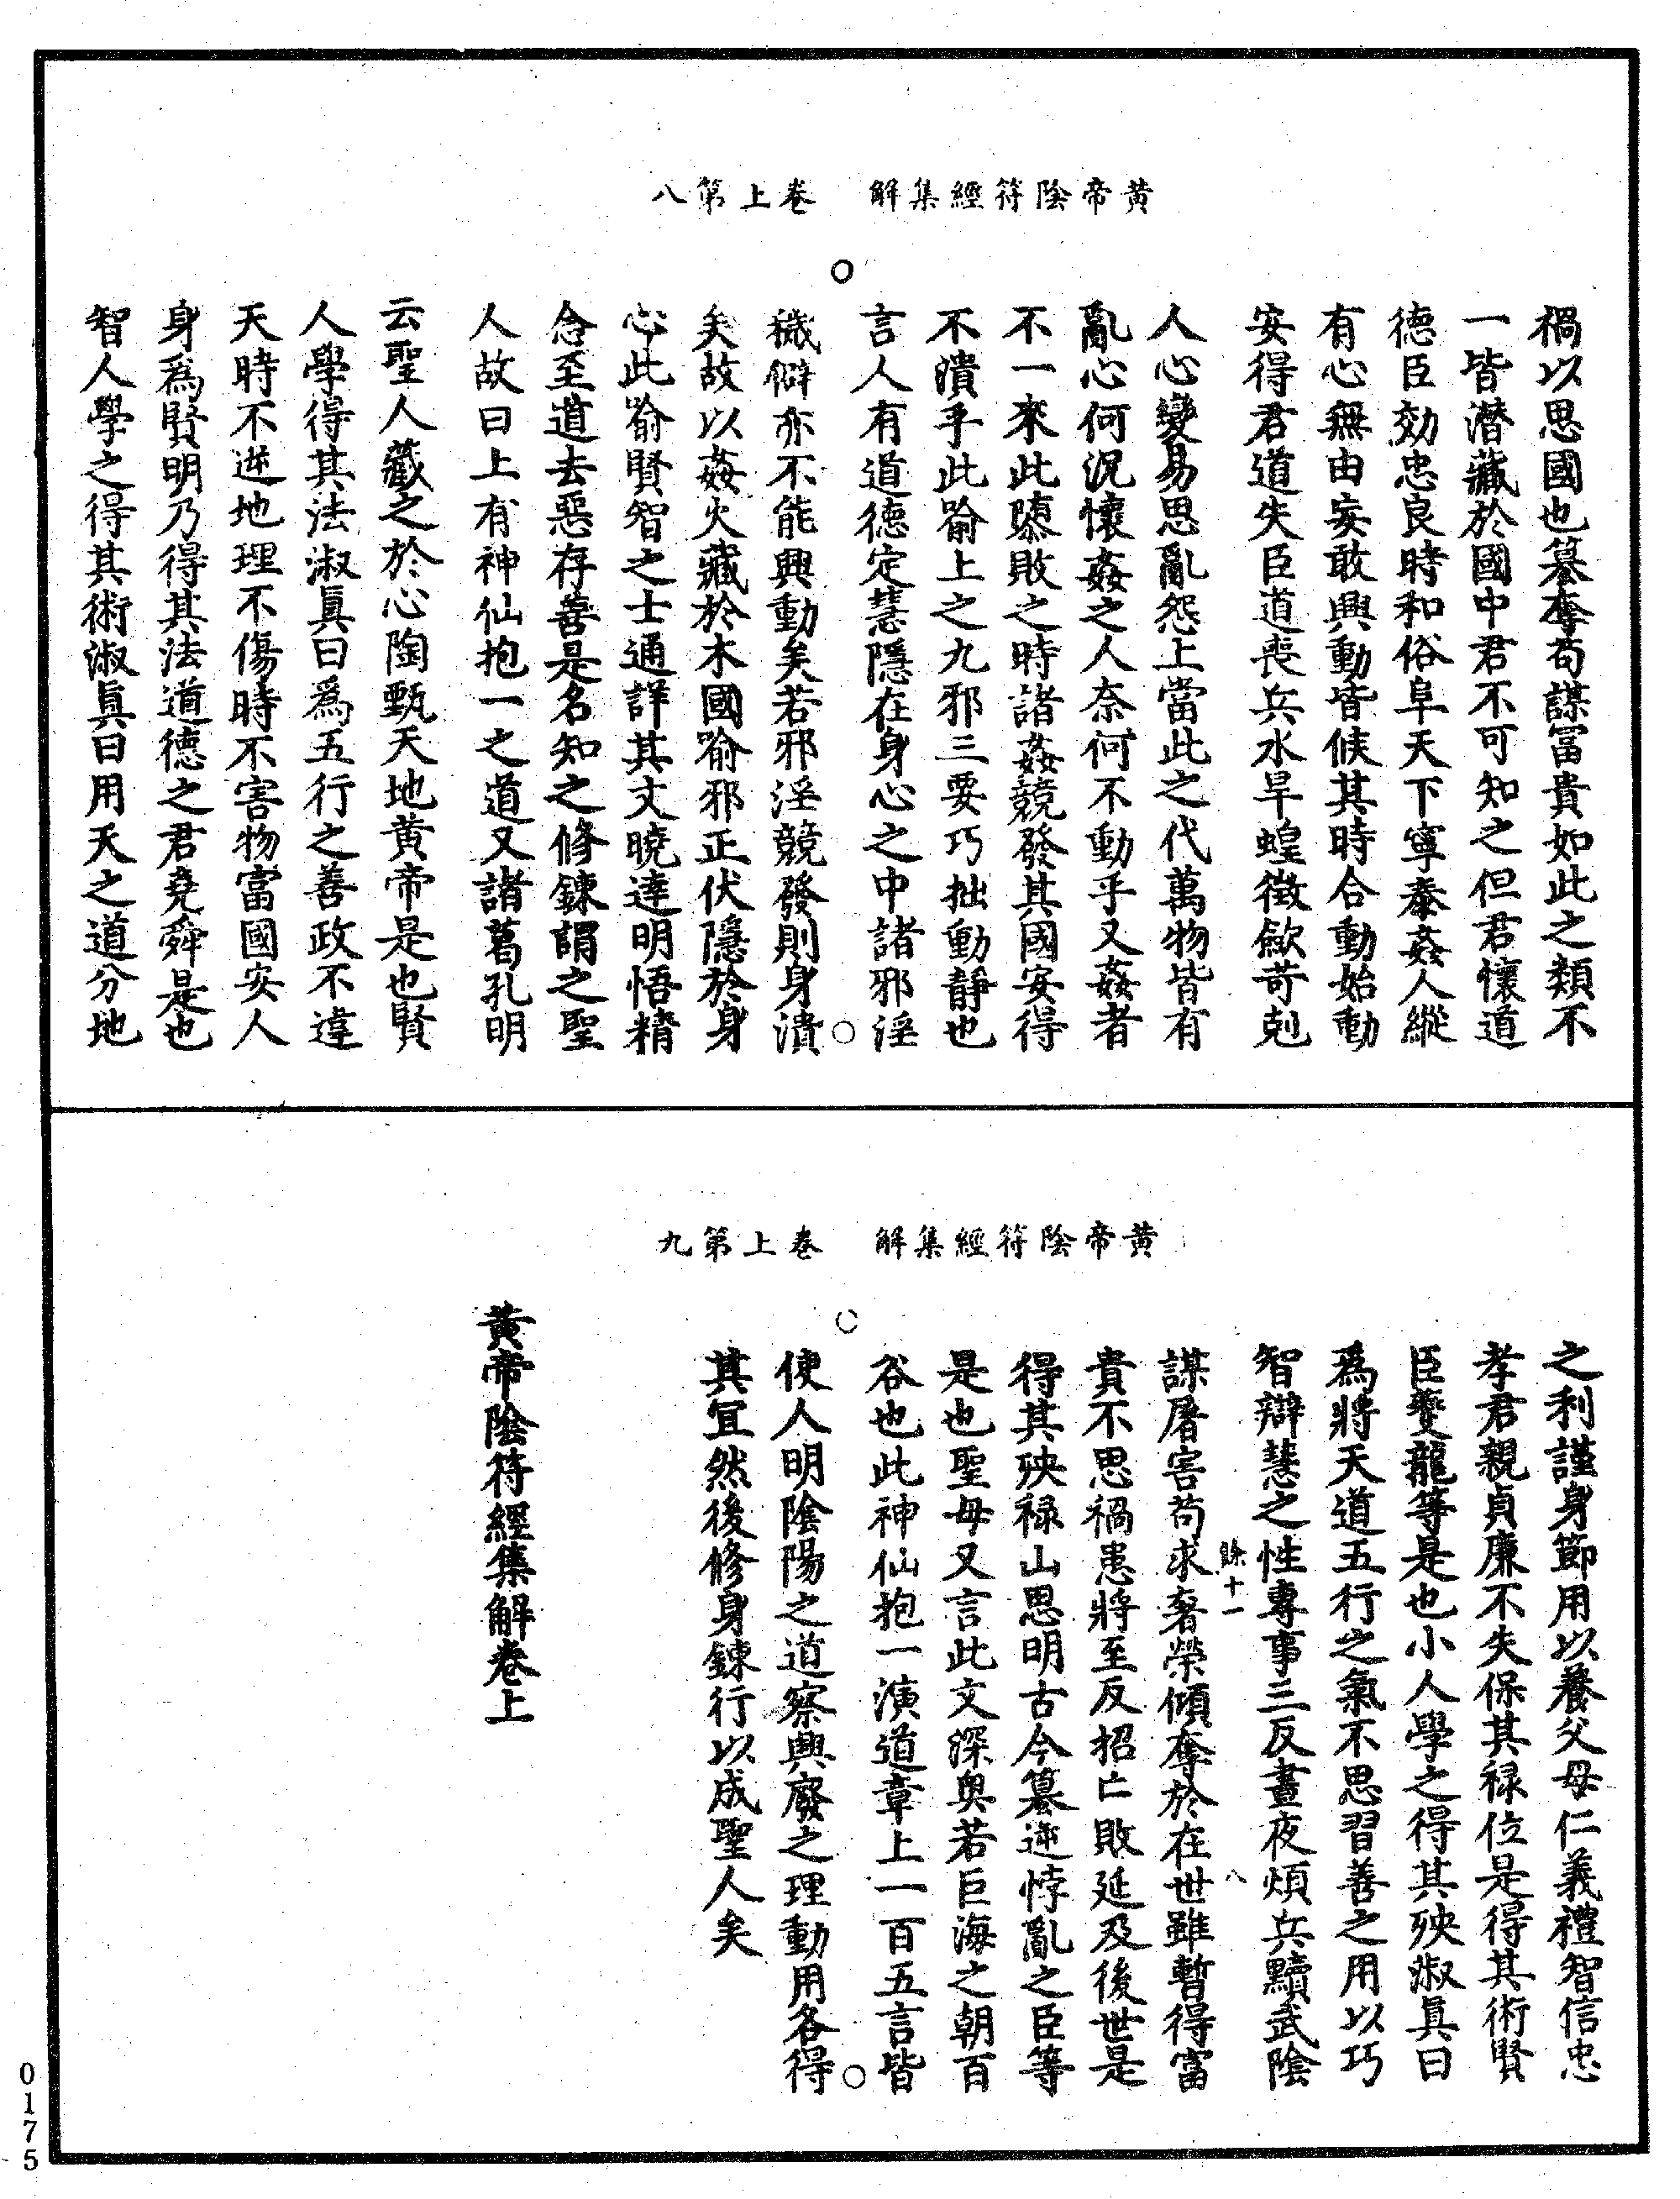 黃帝陰符經集解　卷上第八
禍以思國也篡奪苟謀富貴如此之類不
一皆潜藏於國中君不可知之但君懷道
德臣効忠良時和俗阜天下寧泰姦人縱
有心無由妄敢興動皆候其時合動始動
安得君道失臣道喪兵水旱蝗徵歛苛剋
人心變易思亂怨上當此之代萬物皆有
亂心何況懷姦之人奈何不動乎又姦者
不一來此隳敗之時諸姦競發其國安得
不潰乎此喻上之九邪三要巧拙動靜也
言人有道德定慧隱在身心之中諸邪淫
穢僻亦不能興動矣若邪淫競發則身潰
矣故以姦火藏於木國喻邪正伏隱於身
心此喻賢智之士通詳其文曉達明悟精
念至道去惡存善是名知之修鍊謂之聖
人故曰上有神仙抱一之道又諸葛孔明
云聖人藏之於心陶甄天地黃帝是也賢
人學得其法淑眞曰爲五行之善政不違
天時不逆地理不傷時不害物富國安人
身爲賢明乃得其法道德之君堯舜是也
智人學之得其術淑眞曰用天之道分地
黃帝陰符經集解　卷上第九
之利謹身節用以養父母仁義禮智信忠
孝君親貞廉不失保其禄位是得其術賢
臣夔龍等是也小人學之得其殃淑眞曰
爲將天道五行之氣不思習善之用以巧
智辯慧之性專事三反晝夜煩兵黷武陰
餘十一　八
謀屠害苟求奢榮傾奪於在世雖暫得富
貴不思禍患將至反招亡敗延及後世是
得其殃禄山思明古今篡逆悖亂之臣等
是也聖母又言此文深奥若巨海之朝百
谷也此神仙抱一演道章上一百五言皆
使人明陰陽之道察興廢之理動用各得
其宜然後修身鍊行以成聖人矣
黃帝陰符經集解卷上
0175